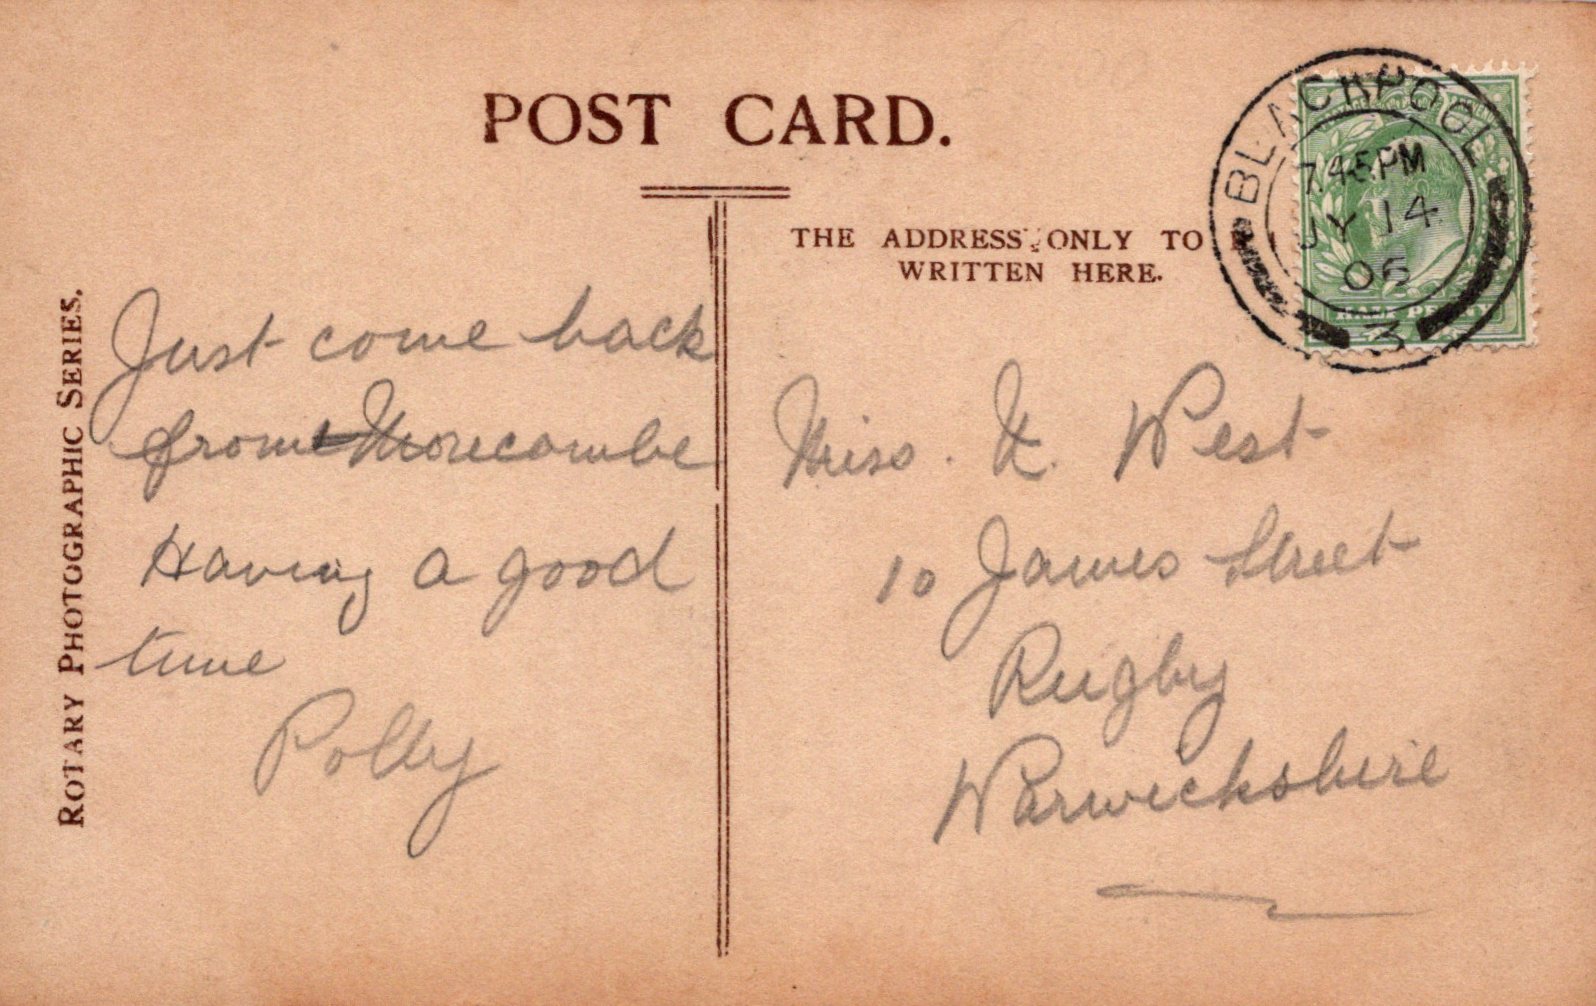 POST CARD.
THE ADDRESS ONLY TO
WRITTEN HERE.
ROTARY PHOTOGRAPHIC SERIES.
BLACKPOOL
7.45PM
JY 14
06
3
Just come back
from Morecambe
Having a good
time
Polly
Miss. N. West
10 James Street
Rugby
Warwickshire